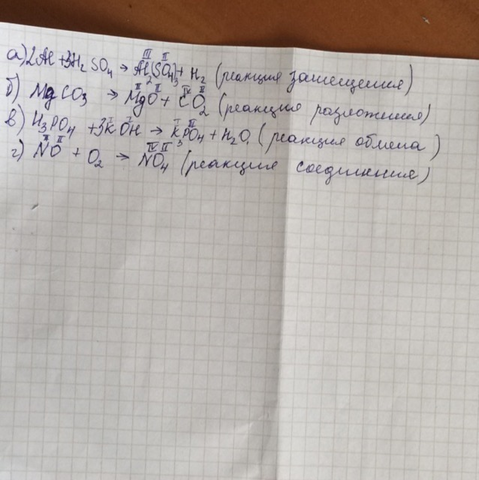 а) 2Al + 3H₂SO₄ → Al₂(SO₄)₃ + H₂ (реакция замещения)
б) MgCO₃ → MgO + CO₂ (реакция разложения)
в) H₃PO₄ + 3KOH → K₃PO₄ + H₂O (реакция обмена)
г) NO + O₂ → NO₄ (реакция соединения)